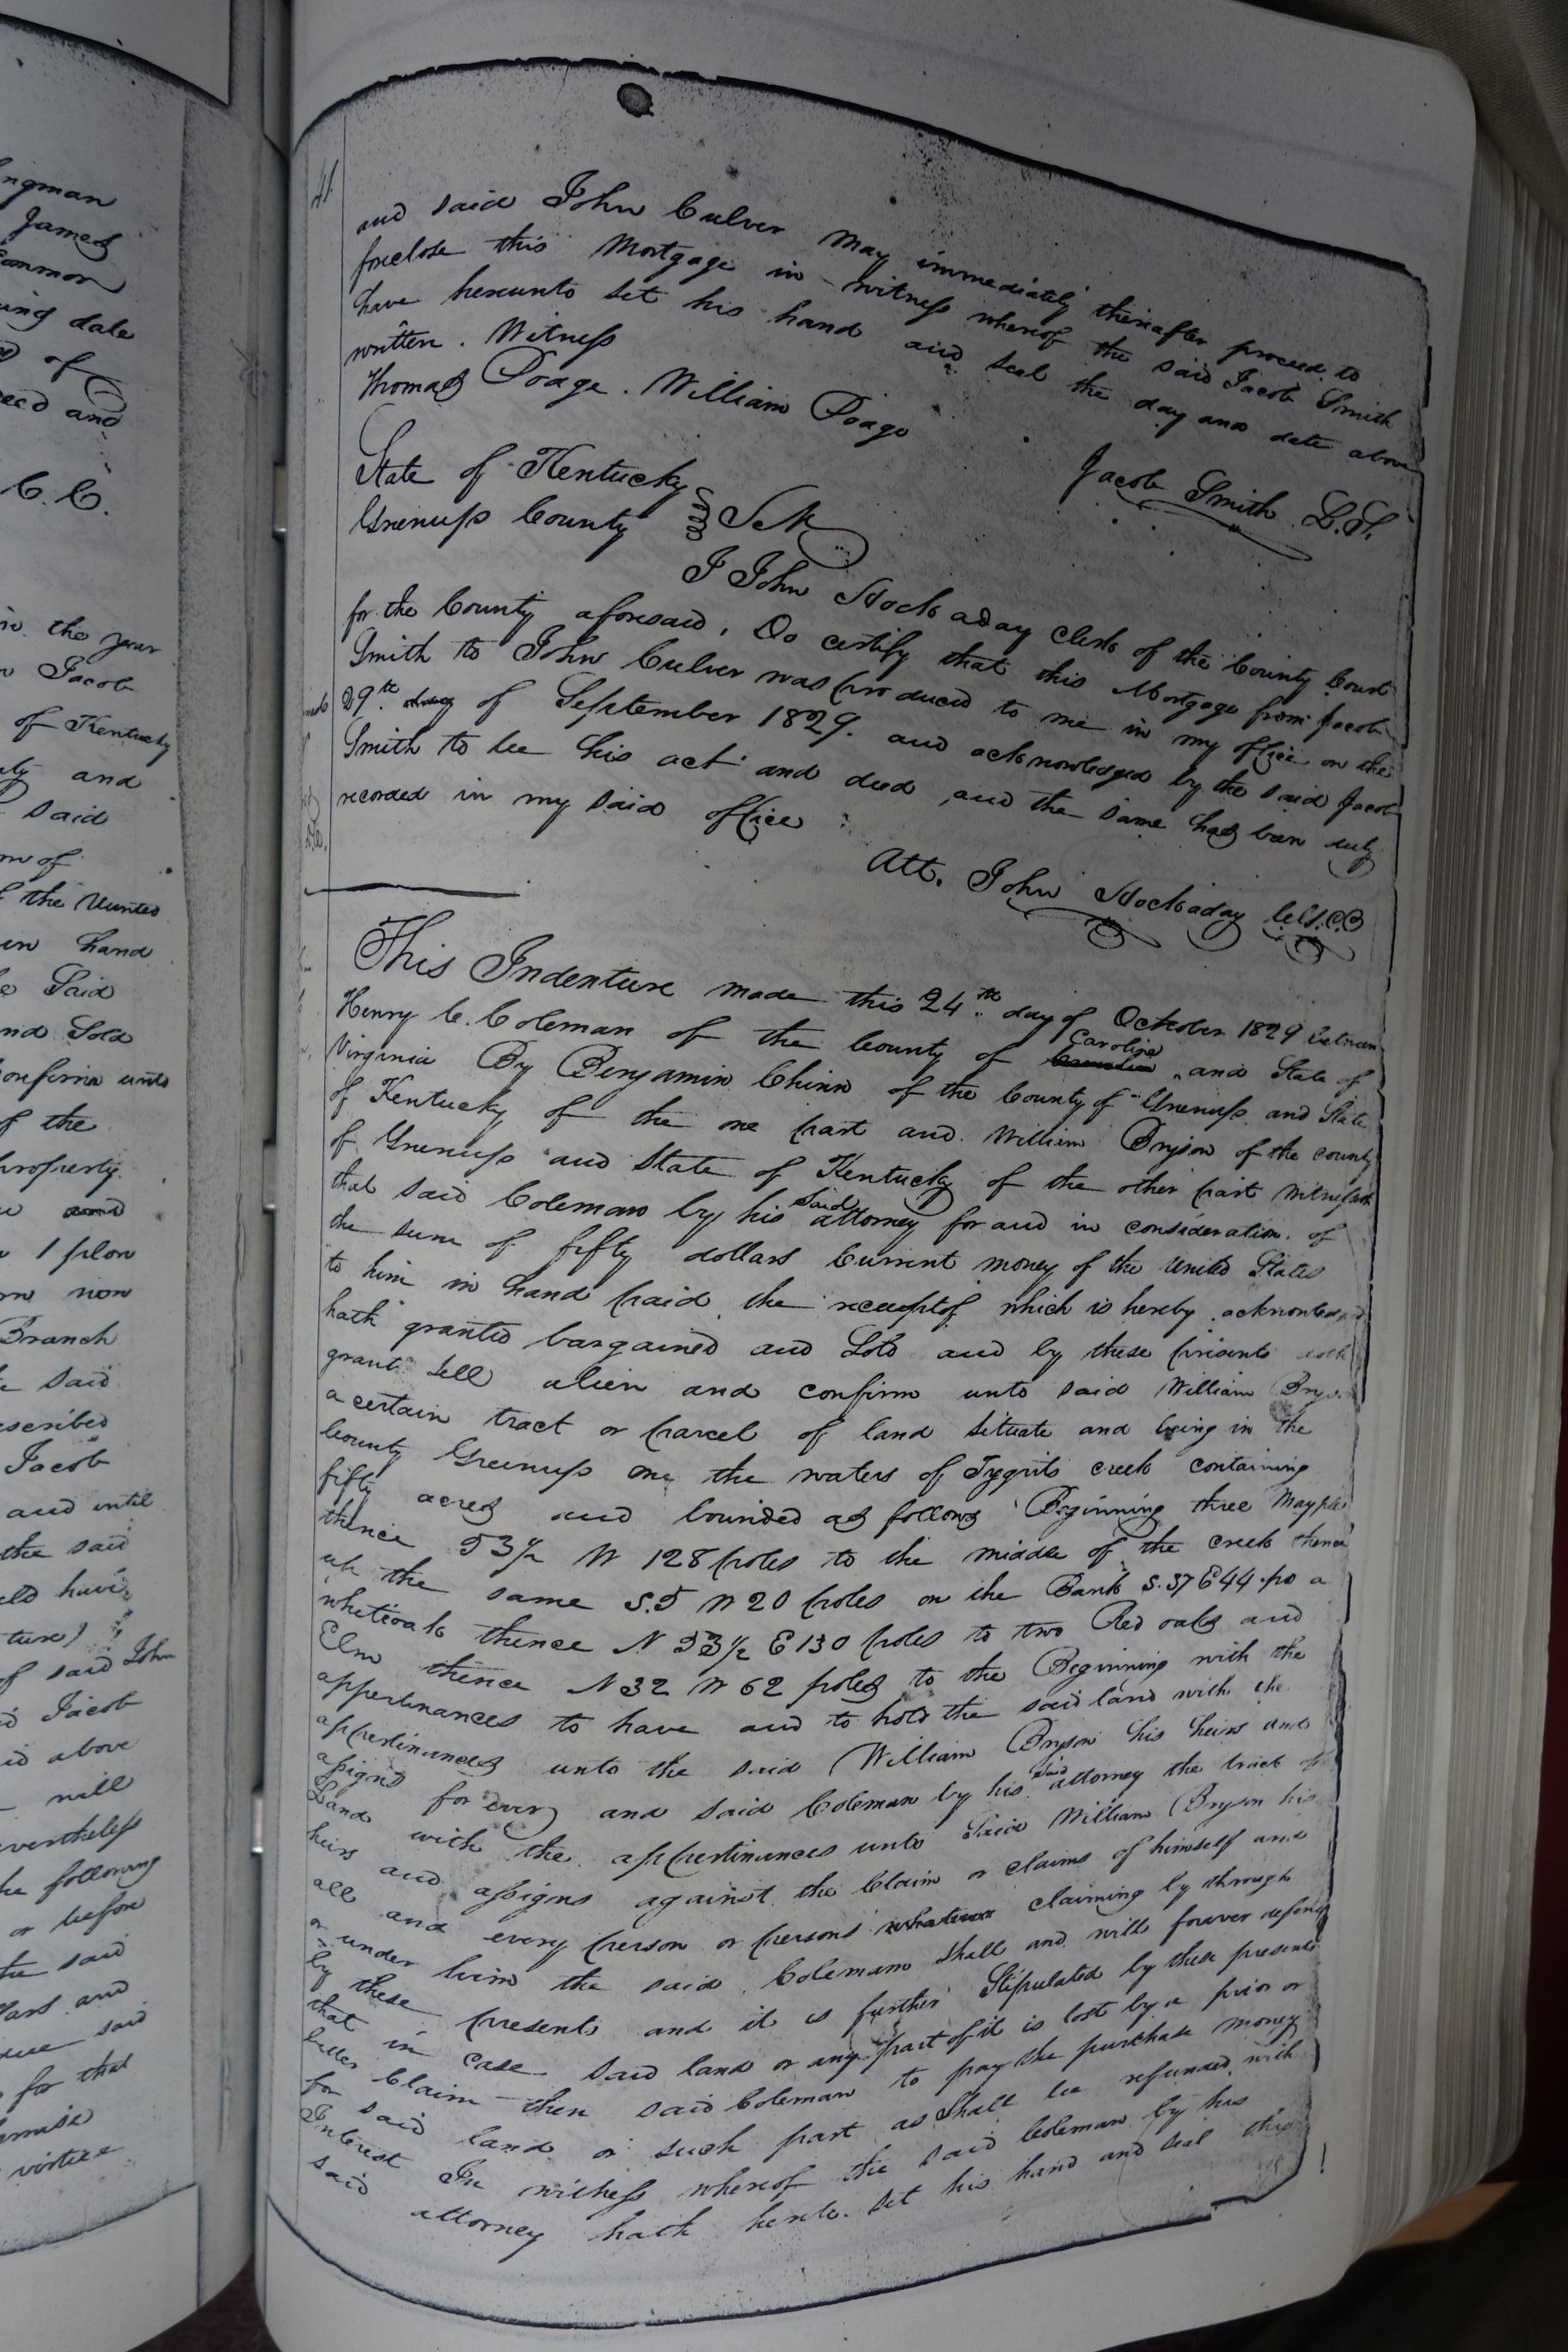 ngman
James
ing date
of
eed and
C. C.
in the year
Jacob
of Kentucky
ty and
said
of
the United
in hand
Said
nd Sold
onfirm unto
of the
property
and
1 plow
now
Branch
said
escribed
Jacob
and until
the said
ld have
ture)
of said John
Jacob
id above
will
evertheless
he following
or before
the said
lars and
said
for that
virtue
41
and said John Culver may immediately thereafter proceed to
foreclose this Mortgage in witness whereof the said Jacob Smith
have hereunto set his hand and seal the day and date above
written. Witness
Thomas Poage. William Poage
Jacob Smith L.S.
State of Kentucky
Greenup County } Sct
I John Hockaday Clerk of the County Court
for the County aforesaid, Do certify that this Mortgage from Jacob
Smith to John Culver was produced to me in my office on the
29th day of September 1829. and acknowledged by the said Jacob
Smith to be his act and deed, and the same has been duly
recorded in my said office
Att. John Hockaday
This Indenture made this 24th day of October 1829 between
Henry C. Coleman of the County of Caroline, and State of
Virginia By Benjamin Chinn of the County of Greenup and State
of Kentucky of the one part and William Bryson of the county
of Greenup and State of Kentucky of the other part Witnesseth
that said Coleman by his said attorney for and in consideration of
the sum of fifty dollars Current money of the United States
to him in hand paid the receipt of which is hereby acknowledged
hath granted bargained and Sold and by these presents doth
grant sell alien and confirm unto said William Bryson
a certain tract or parcel of land situate and being in the
County Greenup on the waters of Tygerts creek containing
fifty acres and bounded as follows Beginning three Maples
thence 53½ W 128 poles to the middle of the creek thence
up the same S.5 W 20 poles on the Bank S.37 E 44 po a
whiteoak thence N 53½ E 130 poles to two Red oaks and
Elm thence N32 W 62 poles to the Beginning with the
appertinances to have and to hold the said land with the
appertinances unto the said William Bryson his heirs and
assigns for every and said Coleman by his said attorney the tract of
Land with the appertinances unto Said William Bryson his
heirs and assigns against the Claim or claims of himself and
all and every person or persons whatever claiming by through
or under him the said Coleman shall and will forever defend
by these presents and it is further Stipulated by these presents
that in case said land or any part of it is lost by a prior or
better Claim then said Coleman to pay the purchase money
for said land or such part as shall be refunded with
Interest In witness whereof the said Coleman by his
said attorney hath hereto set his hand and seal this